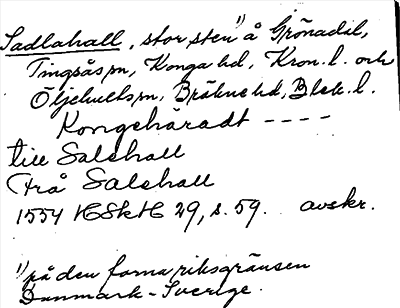 Sadlahall, stor sten¹⁾ å Grönadal,
Tingsås sn, Konga hd, Kron. l. och
Öljehults sn, Bräkne hd, Blek. l.
Kongehäradt ----
till Salehall
Frå Salehall
1554 HSkH 29, s. 59. avskr.
¹⁾ på den forna riksgränsen
Danmark-Sverige.